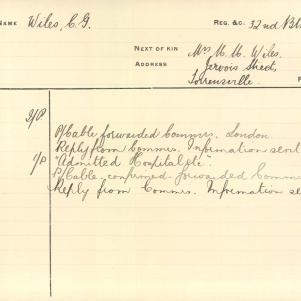 NAME Wiles, C.G. REG. &C. 32nd
NEXT OF KIN Mrs M. M. Wiles,
ADDRESS Jervois Street,
Torrensville.
Cable forwarded Commrs. London
Reply from Commrs. Information sent
"Admitted Hospital etc".
Cable confirmed forwarded
Reply from Commrs. Information